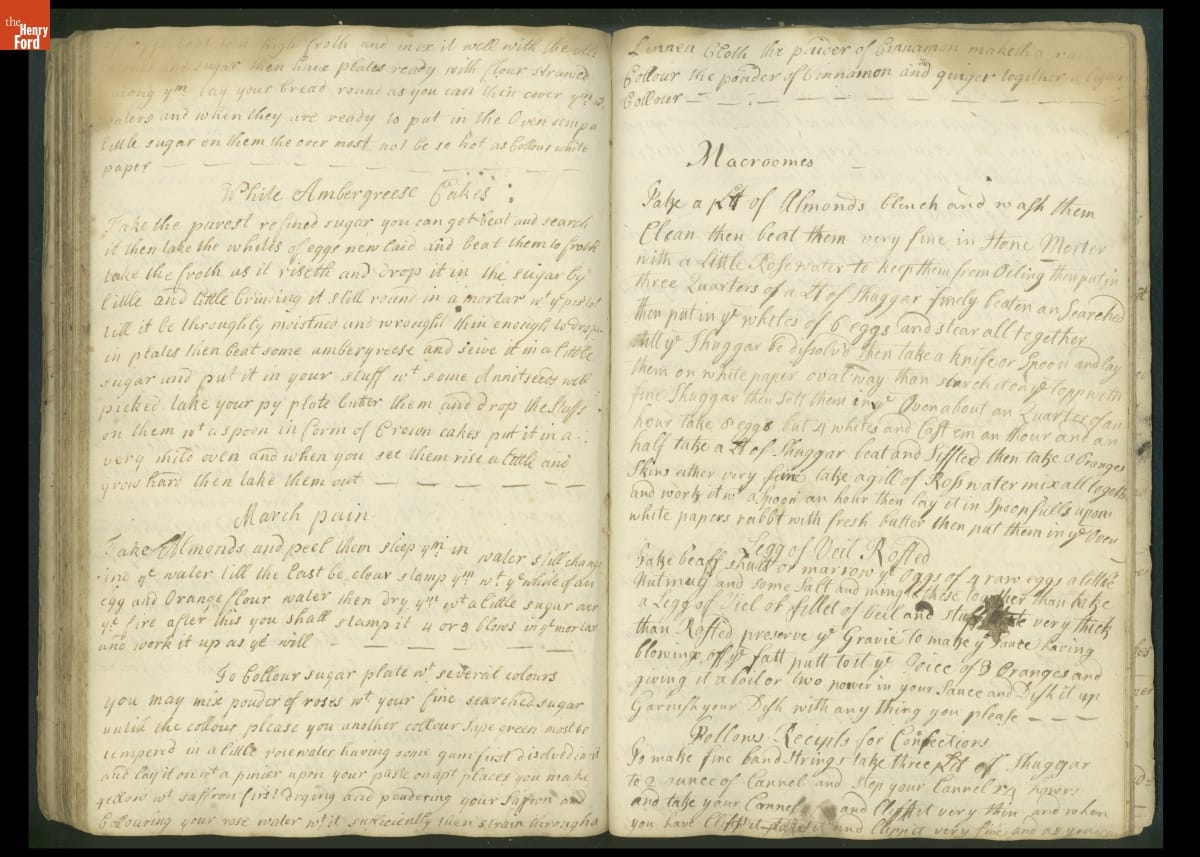 the
Henry
Ford
beat to a high froth and mix it well with the
and sugar then have plates ready with flour strawed
among ym lay your bread round as you can then cover ym
and when they are ready to put in the Oven
little sugar on them the over most not be so hot as Collour white
paper
White Ambergreese Cakes
Take the purest refined sugar you can get beat and search
it then take the whites of eggs new laid and beat them to froth
take the froth as it riseth and drop it in the sugar by
little and little brinding it still round in a mortar wt ye pestel
till it be throughly moistned and wrought thin enough to drop
in plates then beat some ambergreese and seive it in a little
sugar and put it in your stuff wt some Annitseeds well
picked take your py plate butter them and drop the stuffs
on them wt a spoon in form of Crown cakes put it in a
very mild oven and when you see them rise a little and
grow hard then take them out
March pain
Take Almonds and peel them steip ym in water still chang
ing ye water till the Last be clear stamp ym wt ye white of an
egg and Orange flour water then dry ym wt a little sugar over
ye fire after this you shall stamp it 4 or 5 blows in ye mortar
and work it up as ye will
To Collour sugar plate wt several colours
you may mix pouder of roses wt your fine searched sugar
until the collour please you another collour Sape green most be
tempered in a little rosewater having some gum first disolved in it
and lay it on wt a pincer upon your paste in apt places you make
yellow wt saffron first drying and poudering your Saffron and
Collouring your rose water wt it sufficiently then strain through a
Linnen Cloth the pouder of Cinnamon maketh a
Collour the pouder of Cinnamon and ginger together a
Collour
Macroomes
Take a lt of Almonds blench and wash them
Clean then beat them very fine in Stone Morter
with a Little Rosewater to keep them from Oeling then put in
three Quarters of a lt of Shuggar finely beaten an Searched
then put in ye whites of 6 eggs and stear all together
till ye Shuggar be dissolv'd then take a knife or Spoon and lay
them on white paper oval way than search it on ye topp with
fine Shuggar then sett them in ye Oven about an Quarter of an
hour take 8 eggs but 4 whites and Cast em an hour and an
half take a lt of Shuggar beat and Siffted then take 3 Oranges
Skins either very fine take a gill of Ross water mix all togeth
and work it wt a Spoon an hour then lay it in Spoonfulls upon
white papers rubbt with fresh butter then put them in ye Oven
Legg of Veil Rosted
Take beaff Shuitt or marrow ye Oggs of 4 raw eggs a little
Nutmug and some Salt and mingle these together than take
a Legg of Viel or fillet of Veil and stuff very thick
than Rosted preserve ye Gravie to make ye Sauce having
blowing off ye fatt putt to it ye Joice of 3 Oranges and
giving it a boil or two power in your Sauce and Dish it up
Garnish your Dish with any thing you please
Follows Receipts for Confections
To make fine band strings take three lt of Shuggar
to 2 ounce of Cannel and step your Cannel 24 howers
and take your Cannel and Clifft it very thin and when
you have Clifft it and Clifft it very fine and as you